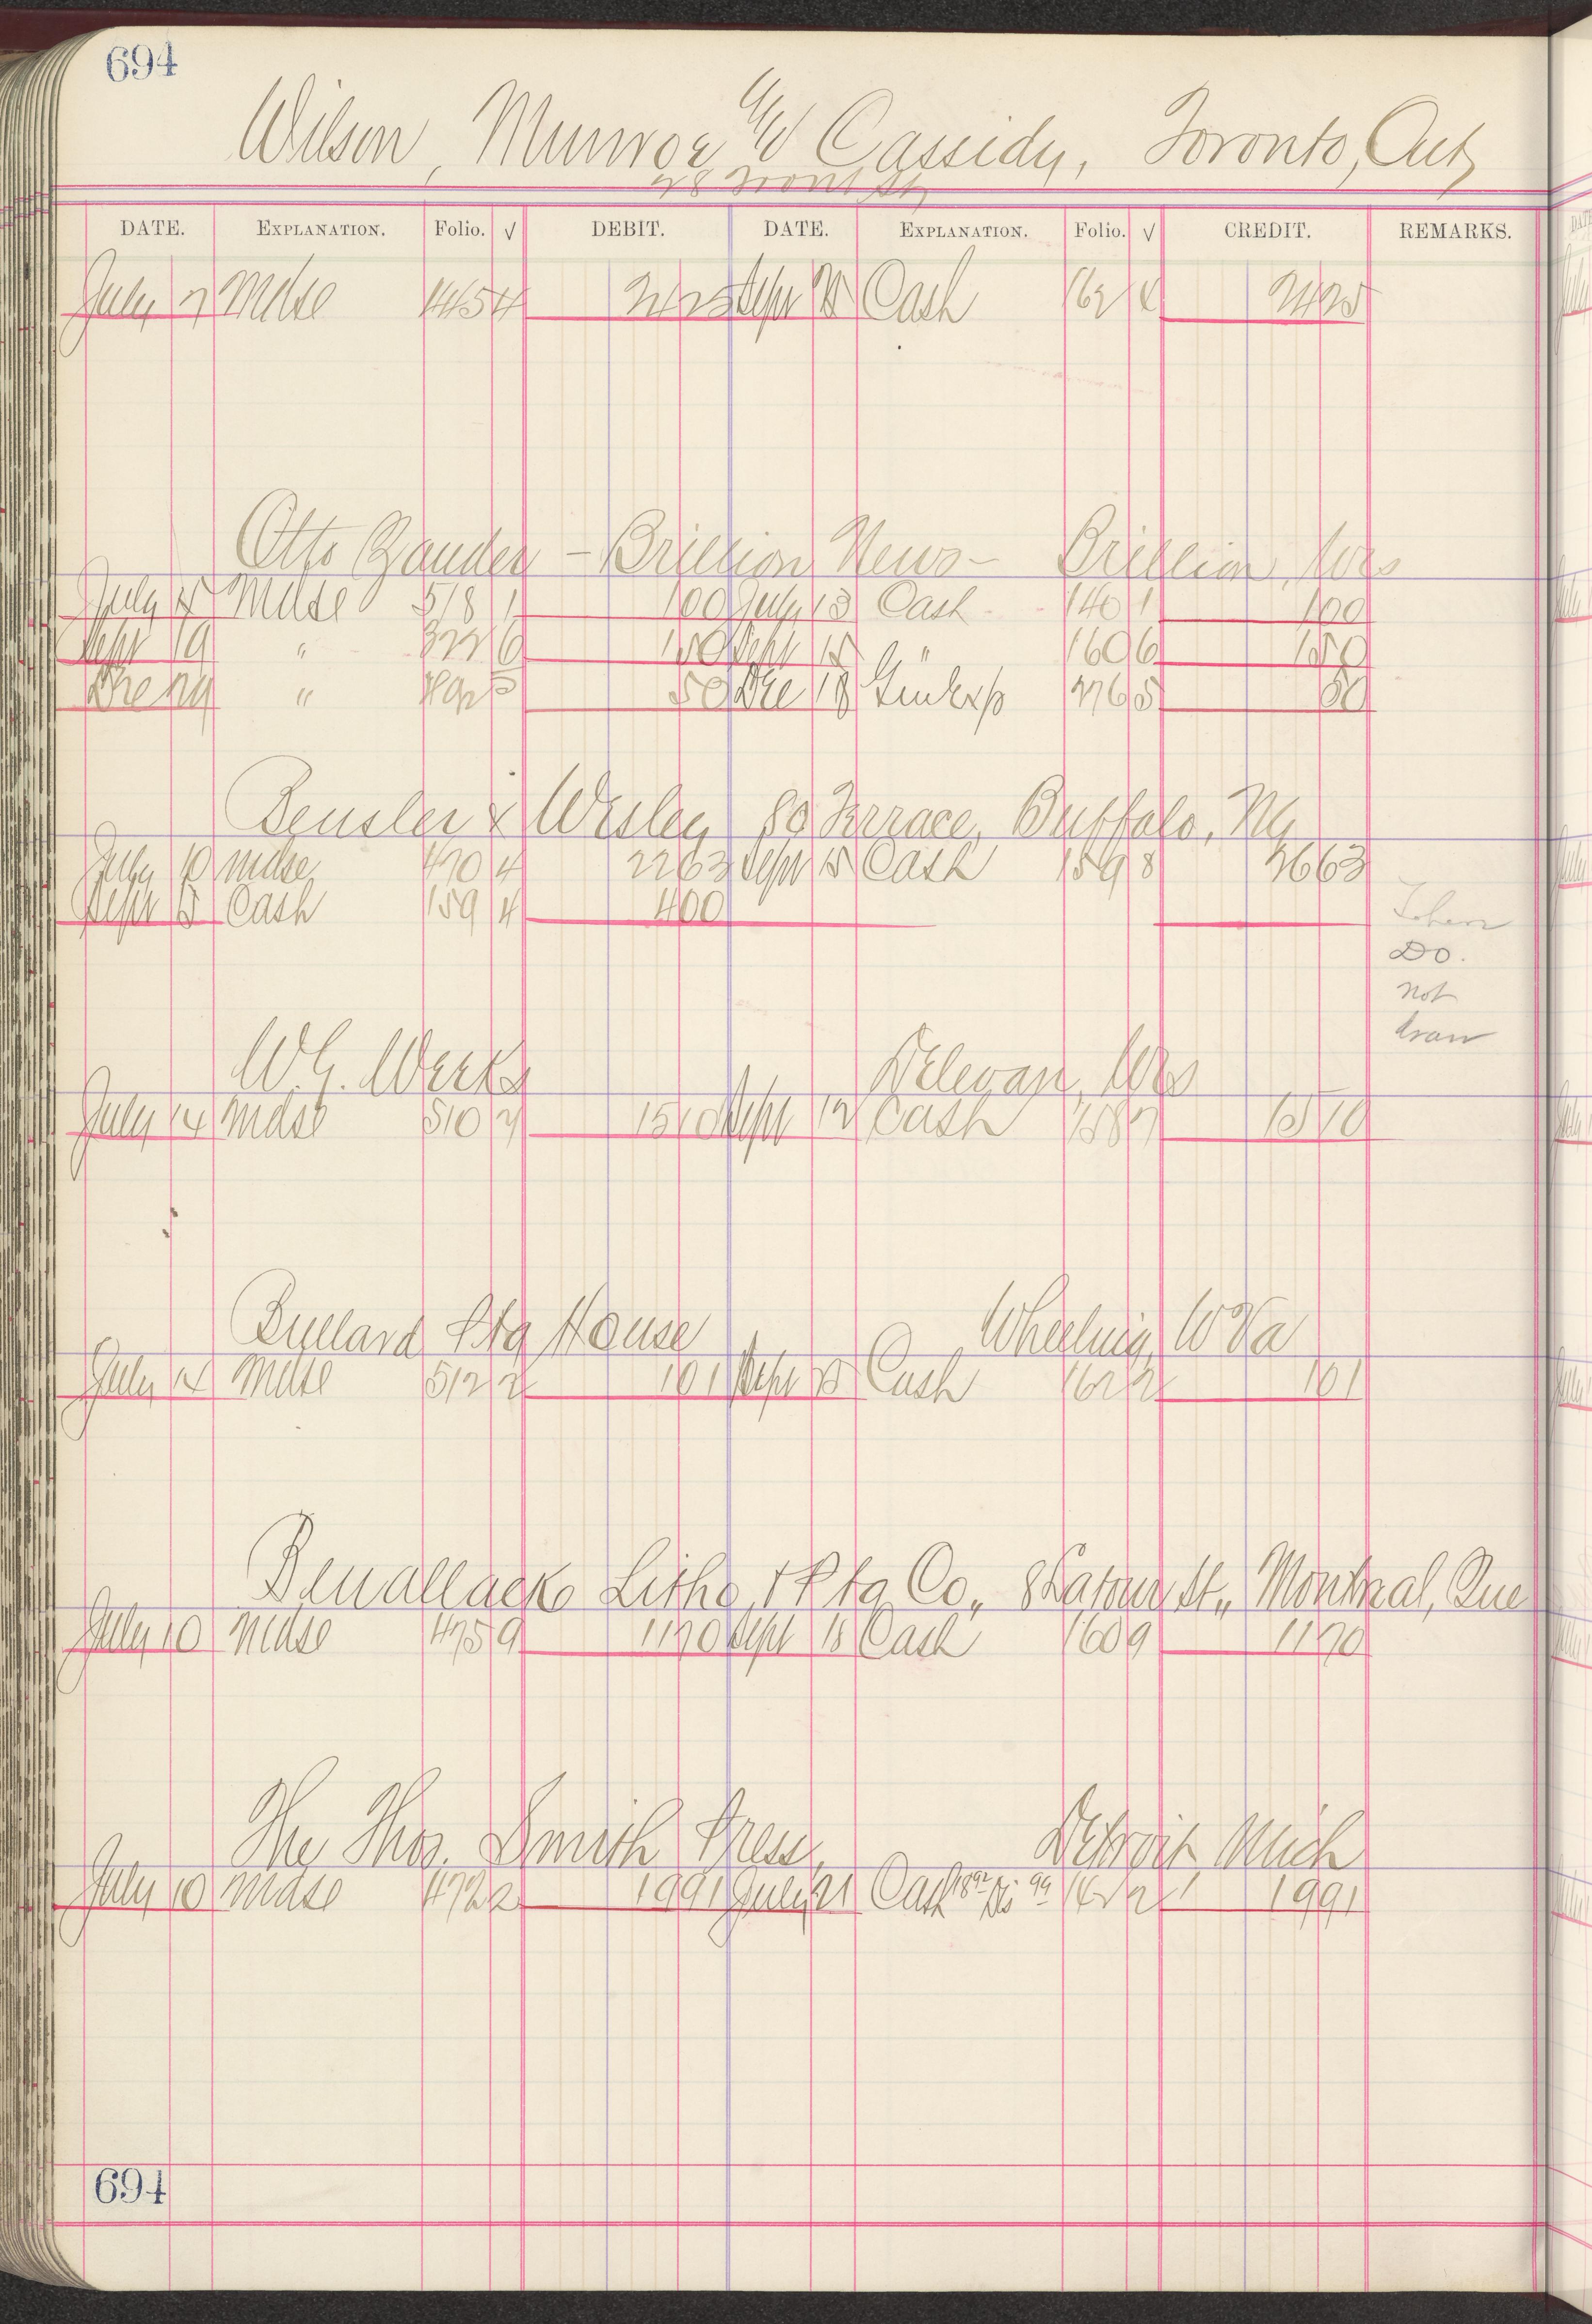 694
Wilson, Munroe & Cassidy, Toronto, Ont
28 Front St
DATE. EXPLANATION. Folio. √ DEBIT. DATE. EXPLANATION. Folio. √ CREDIT. REMARKS.
July 7 Mdse 465 4 2425 Sept 15 Cash 162 4 2425
Otto Zander - Brillion News - Brillion, Wis
July 15 Mdse 518 1 100 July 13 Cash 140 1 100
Sept 19 " 322 6 150 Sept 15 " 160 6 150
Dec " 5 50 Dec 18 276 5 50
Bensler & Wesley 80 Terrace, Buffalo, Ny
July 10 Mdse 470 4 2263 Sept 15 Cash 159 8 2663
Sept 15 Cash 159 4 400
Do.
not
draw
W.G. Weeks Delevan, Wis
July 14 Mdse 510 7 1510 Sept 12 Cash 158 7 1510
Bullard Ptg House Wheeling, W Va
July 14 Mdse 512 2 101 Sept 15 Cash 162 2 101
Benallack Litho & Ptg Co., 8 Latour St., Montreal, Que
July 10 Mdse 475 9 1170 Sept 15 Cash 160 9 1170
The Thos. Smith Press, Detroit, Mich
July 10 Mdse 472 2 1991 July 21 Cash 18 92 Dis 99 142 2 1991
694